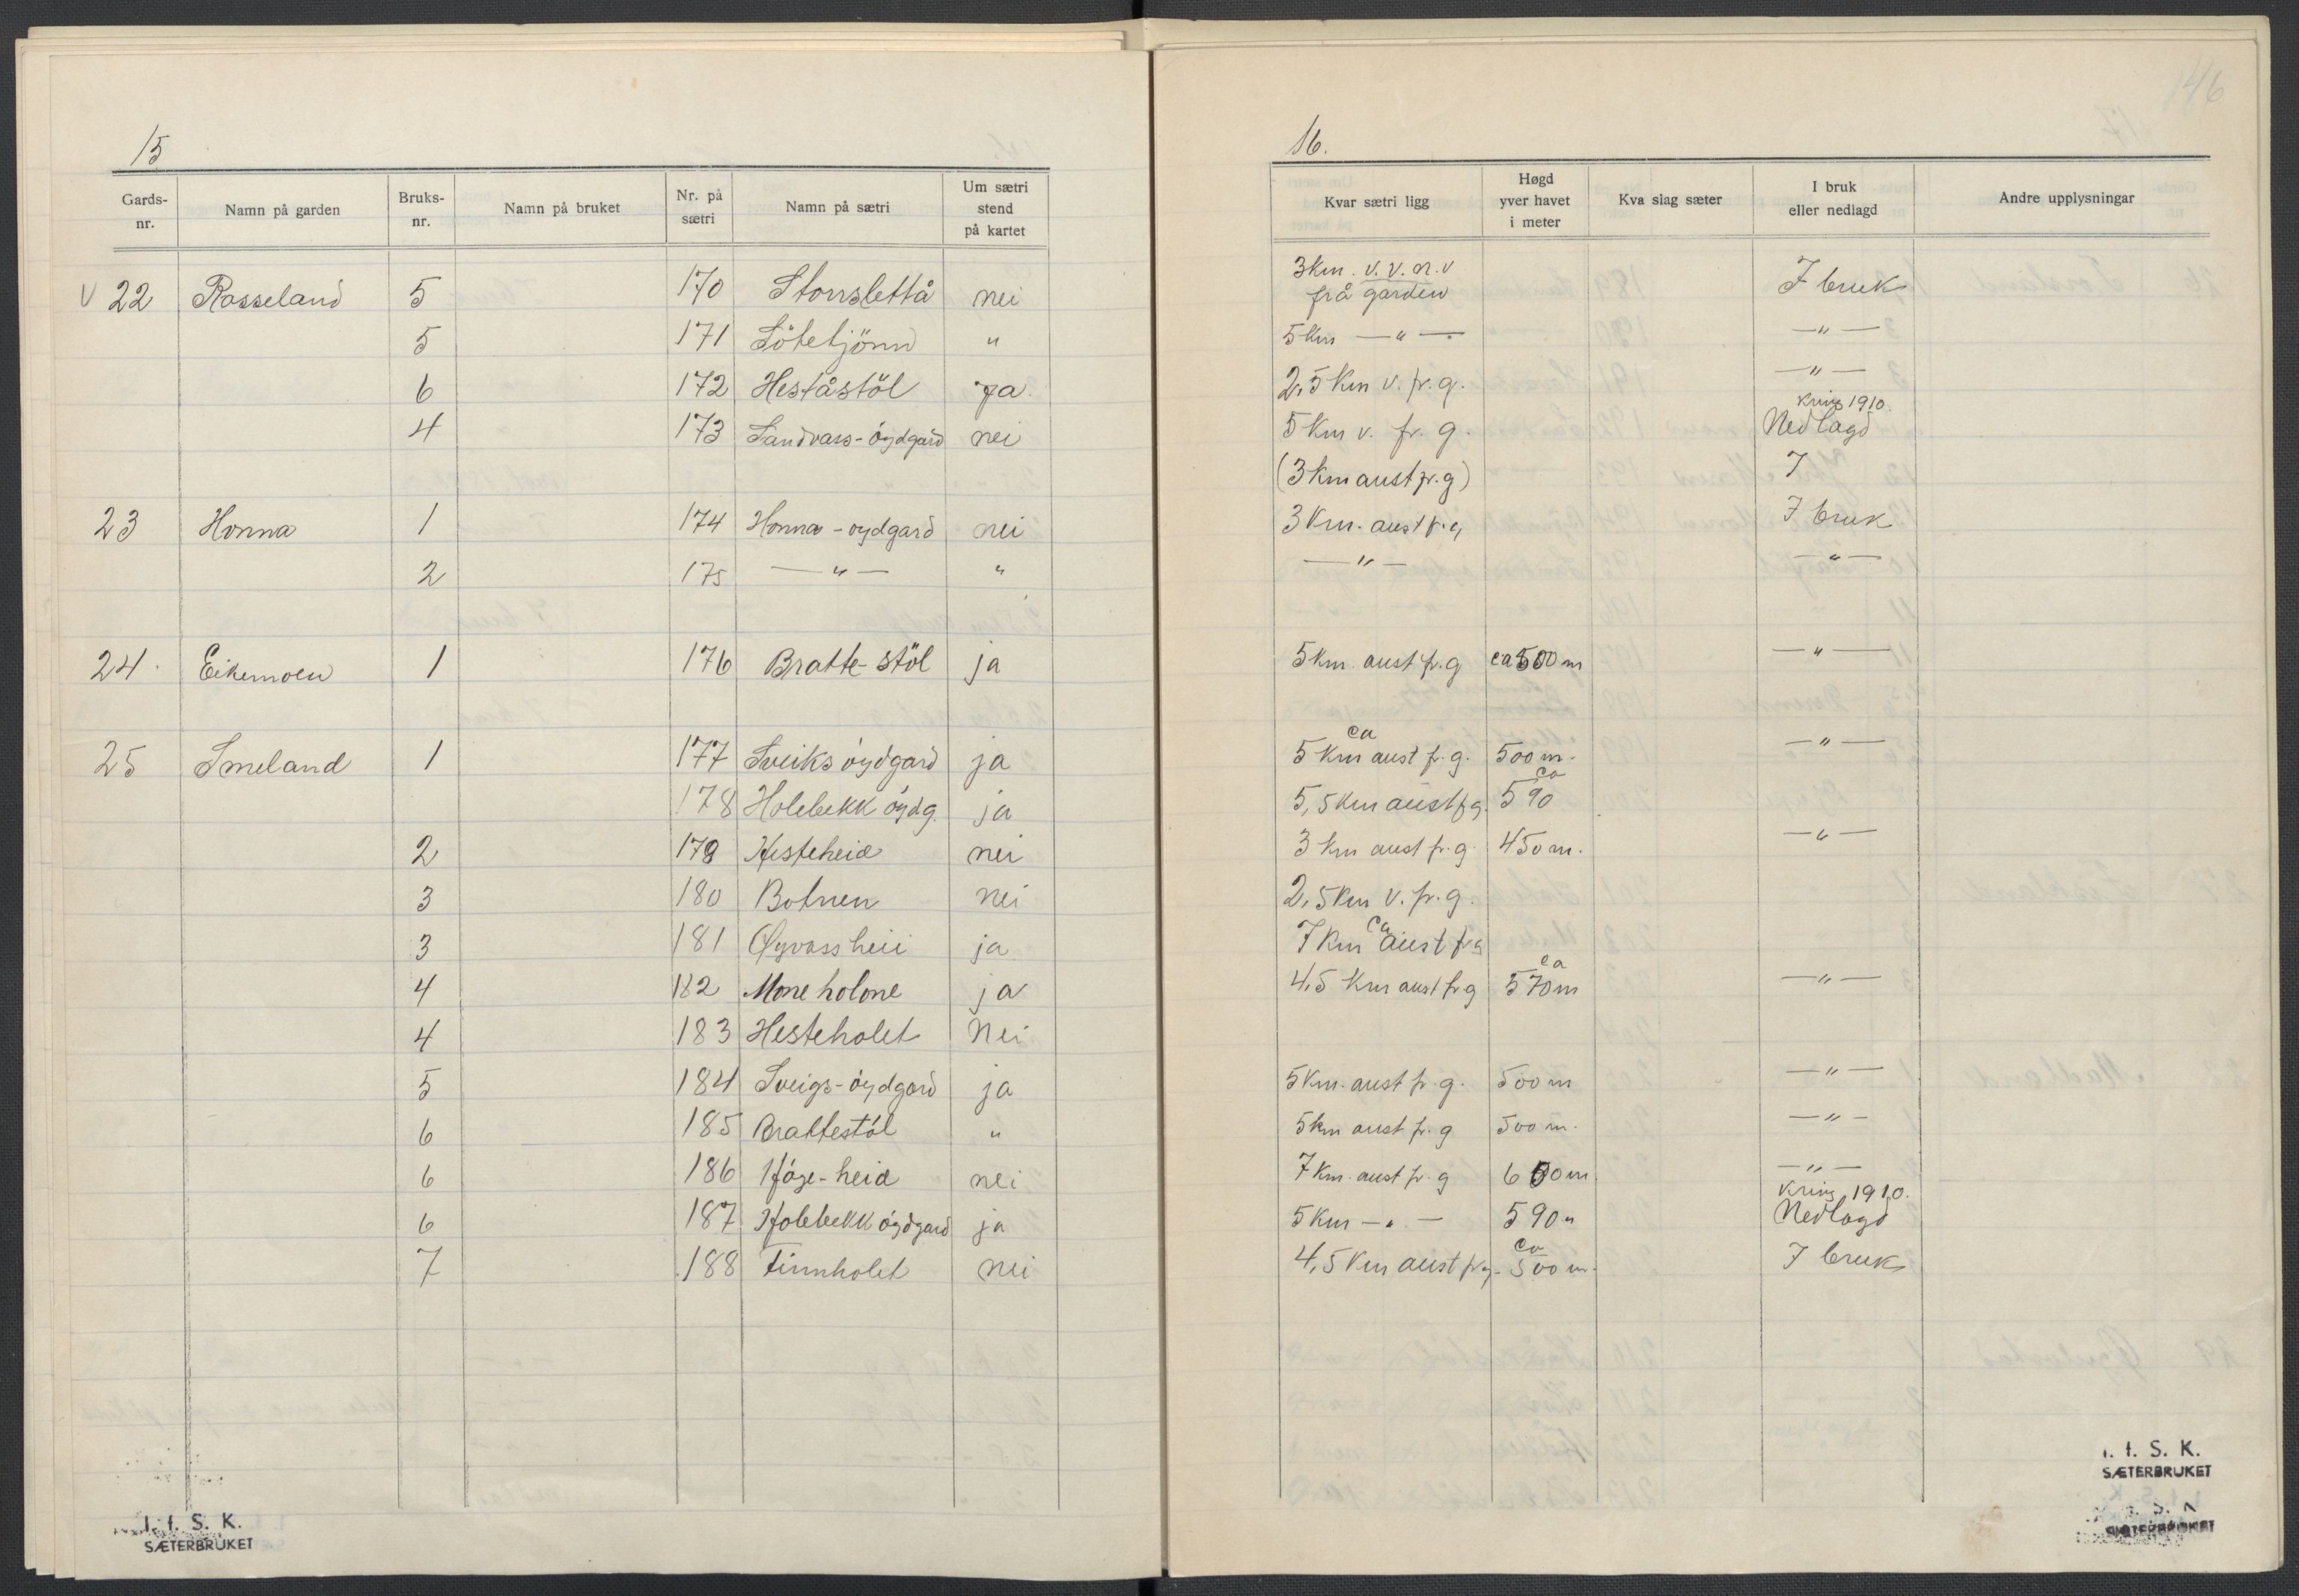 15
Gards-nr. Namn på garden Bruks-nr. Namn på bruket Nr. på sætri Namn på sætri Um sætri stend på kartet
V 22 Rosseland 5 170 Storrslettå nei
5 171 Löbetjönn "
6 172 Heståstöl ja.
4 173 Sandvass-öydgard nei
23 Honna 1 174 Honna-oydgard nei
2 175 — " — "
24. Eikemoen 1 176 Bratte-stöl ja
25 Smeland 1 177 Sveiks öydgard ja
178 Holebekk öydg. ja
2 179 Hesteheia nei
3 180 Botnen nei
3 181 Øyvassheii ja
4 182 Mone holone ja
4 183 Hesteholet Nei
5 184 Sveigs-öydgard ja
6 185 Brattestöl "
6 186 Höge-heia nei
6 187 Holebekk öydgard ja
7 188 Finnholet nei
I. f. S. K.
SÆTERBRUKET
146
16.
Kvar sætri ligg Høgd yver havet i meter Kva slag sæter I bruk eller nedlagd Andre upplysningar
3km. v.v.n.v frå garden I bruk
5km — " — — " —
2,5 Km v. fr. g. — " —
5 Km v. fr. g. kring 1910. Nedlagd
(3 Km aust fr. g) I
3 Km. aust fr. g I bruk
— " — — " —
5km. aust fr. g ca 500 m — " —
5 Km ca aust fr. g. 500 m. — " —
5,5 Km aust fr g. ca 590
3 km aust fr. g. 450 m. — " —
2,5 Km v. fr. g.
7 Km ca aust fr g
4,5 Km aust fr g ca 570 m — " —
5 Km. aust fr. g. 500 m — " —
5km aust fr. g 500 m. — " —
7 Km. aust fr. g 600 m. — " —
5 Km — " — 590 " kring 1910. Nedlagd
4,5 Km aust fr g. ca 500 m. I bruk
I. f. S. K.
SÆTERBRUKET
S. K
SÆTERBRUKET